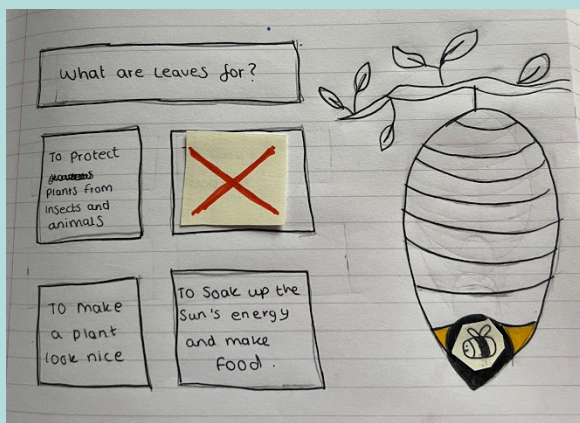 What are Leaves for?
To Protect
Plants from
Insects and
animals
To make
a plant
look nice
To Soak up the
Sun's energy
and make
food.